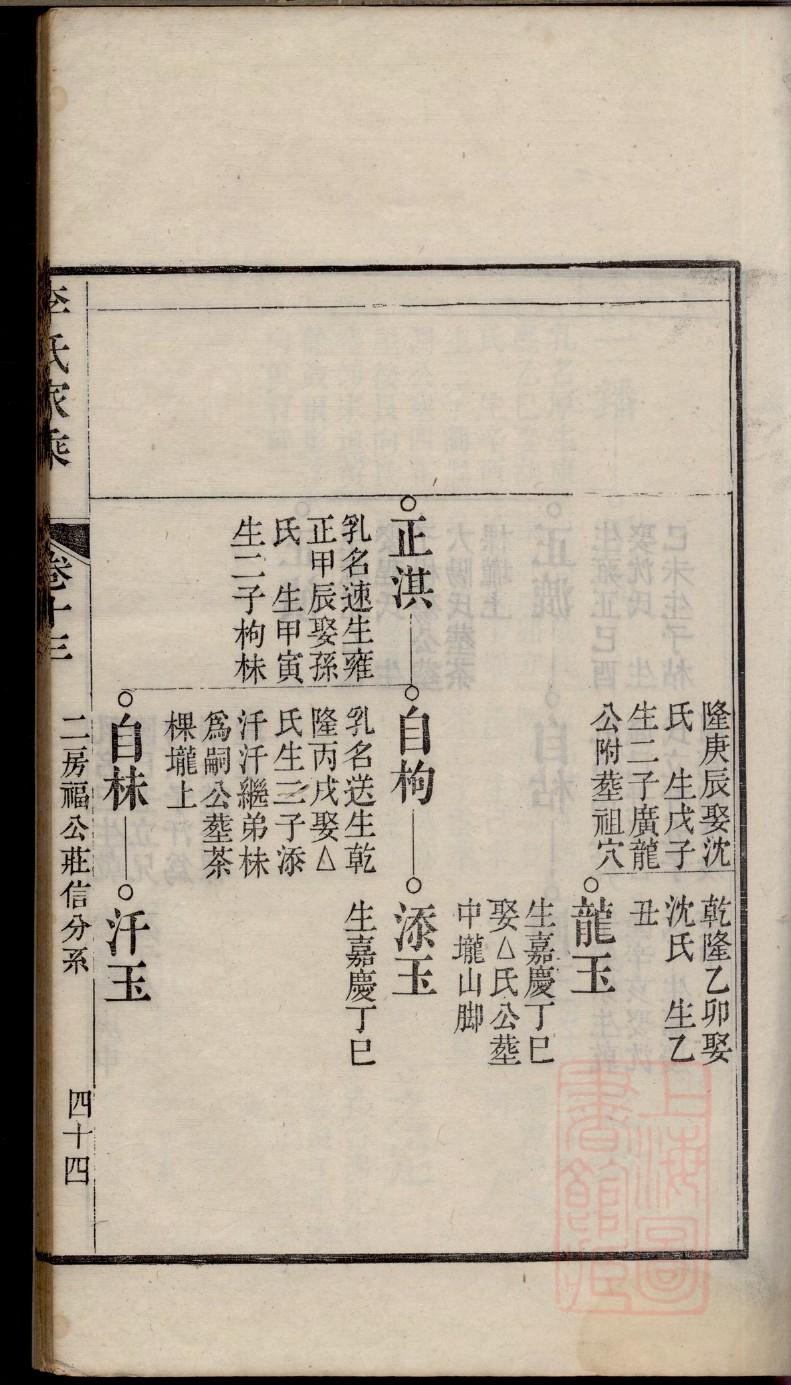 隆庚辰娶沈
氏　生戊子
生二子廣龍
公附塟祖穴
乾隆乙卯娶
沈氏　生乙
丑
龍玉
生嘉慶丁巳
娶△氏公塟
中壠山脚
正淇
乳名速生雍
正甲辰娶孫
氏　生甲寅
生二子枸秣
自枸
乳名送生乾
隆丙戌娶△
氏生三子添
汗汗繼弟秣
爲嗣公塟茶
棵壠上
添玉
生嘉慶丁巳
自秣
汗玉
李氏家乘
卷十三
二房福公莊信分系
四十四
上海圖書館藏